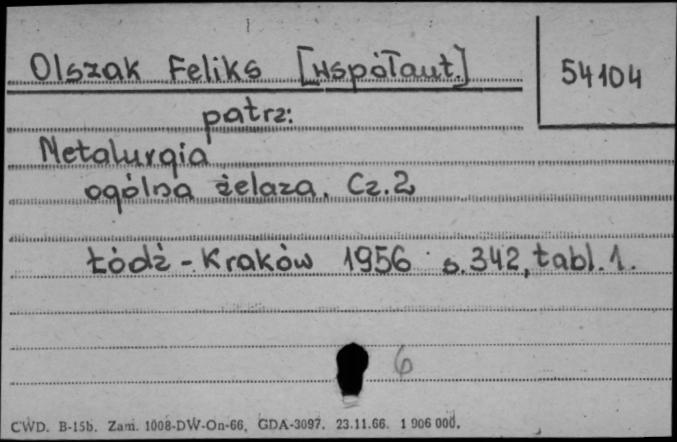 Olszak Feliks [współaut.]
54104
patrz:
Metalurgia
ogólna żelaza. Cz.2
Łódź - Kraków 1956 s. 342, tabl. 1.
6
CWD. B-15b. Zam. 1008-DW-On-66, GDA-3097. 23.11.66. 1 906 000.